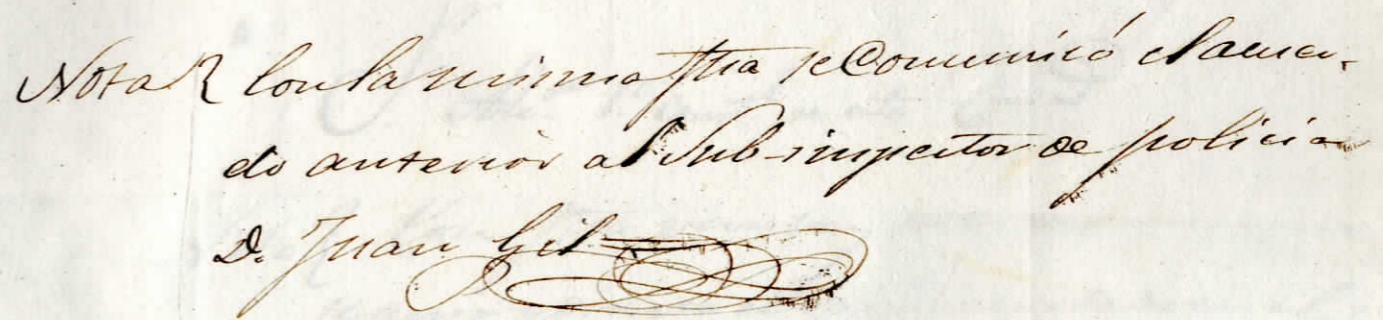 Nota Con la misma fha se Comunicó el acuer-
do anterior al Sub-inspector de policia
D. Juan Gil